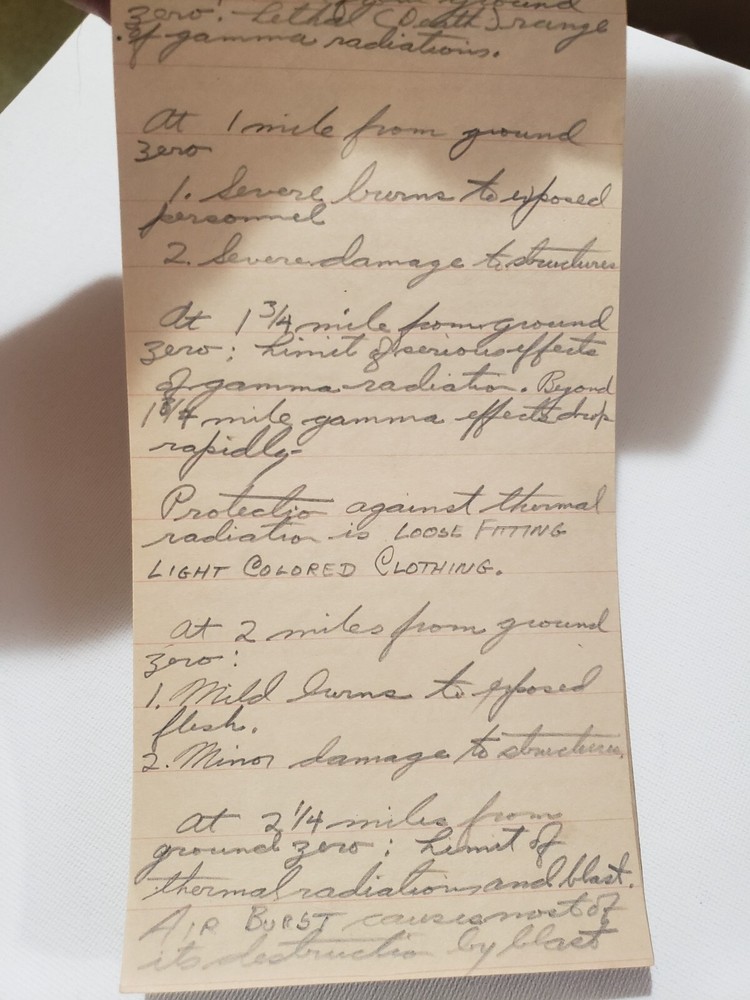 ground
zero: Lethal (Death) range
of gamma radiations.
At 1 mile from ground
zero
1. Severe burns to exposed
personnel
2. Severe damage to structures
At 1 3/4 mile from ground
zero: Limit of serious effects
of gamma radiation. Beyond
1 3/4 mile gamma effects drop
rapidly
Protectio against thermal
radiation is LOOSE FITTING
LIGHT COLORED CLOTHING.
At 2 miles from ground
zero:
1. Mild burns to exposed
flesh.
2. Minor damage to structures.
At 2 1/4 miles from
ground zero: Limit of
thermal radiations and blast.
AIR BURST causes most of
its destruction by blast